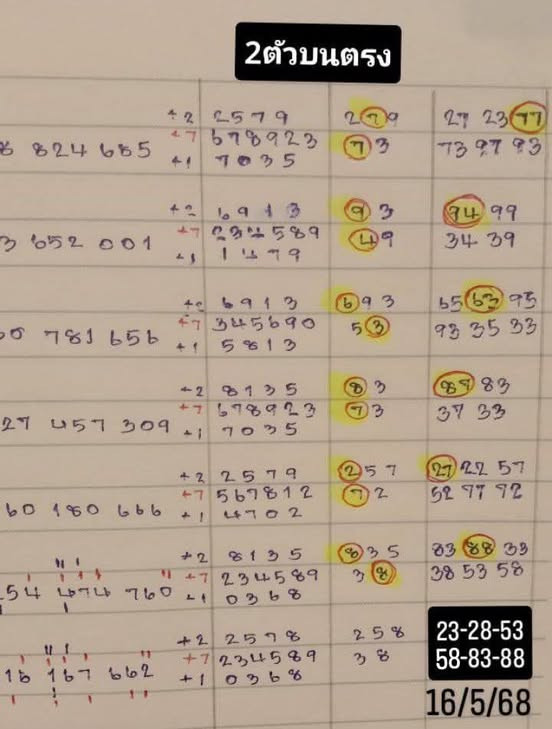 2ตัวบนตรง
+2 2579 279 27 23 77
8 824 685 +7 678923 73 73 97 93
+1 7035
6913 93 94 99
3 652 001 +7 234589 49 34 39
+1 1479
6913 693 65 63 95
781 656 +7 345690 53 93 35 33
+1 5813
+2 8135 83 87 83
27 457 309 +7 678923 73 37 33
+1 7035
+2 2579 257 27 22 57
60 180 666 +7 567812 72 52 77 72
+1 4702
+2 8135 835 83 88 33
54 474 760 +7 234589 38 38 53 58
+1 0368
+2 2578 258 23-28-53
16 167 662 +7 234589 38 58-83-88
+1 0368
16/5/68